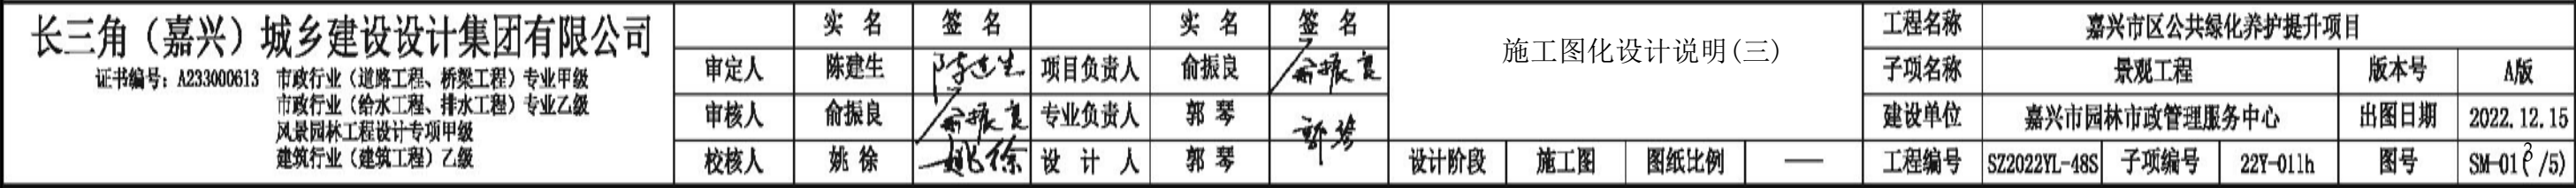 长三角（嘉兴）城乡建设设计集团有限公司
证书编号：A233000613 市政行业（道路工程、桥梁工程）专业甲级
市政行业（给水工程、排水工程）专业乙级
风景园林工程设计专项甲级
建筑行业（建筑工程）乙级
实 名 签 名 实 名 签 名
审定人 陈建生 陈建生 项目负责人 俞振良 俞振良
审核人 俞振良 俞振良 专业负责人 郭 琴 郭琴
校核人 姚 徐 姚徐 设 计 人 郭 琴
施工图化设计说明(三)
设计阶段 施工图 图纸比例 ——
工程名称 嘉兴市区公共绿化养护提升项目
子项名称 景观工程 版本号 A版
建设单位 嘉兴市园林市政管理服务中心 出图日期 2022.12.15
工程编号 SZ2022YL-48S 子项编号 22Y-01lh 图号 SM-01( /5)